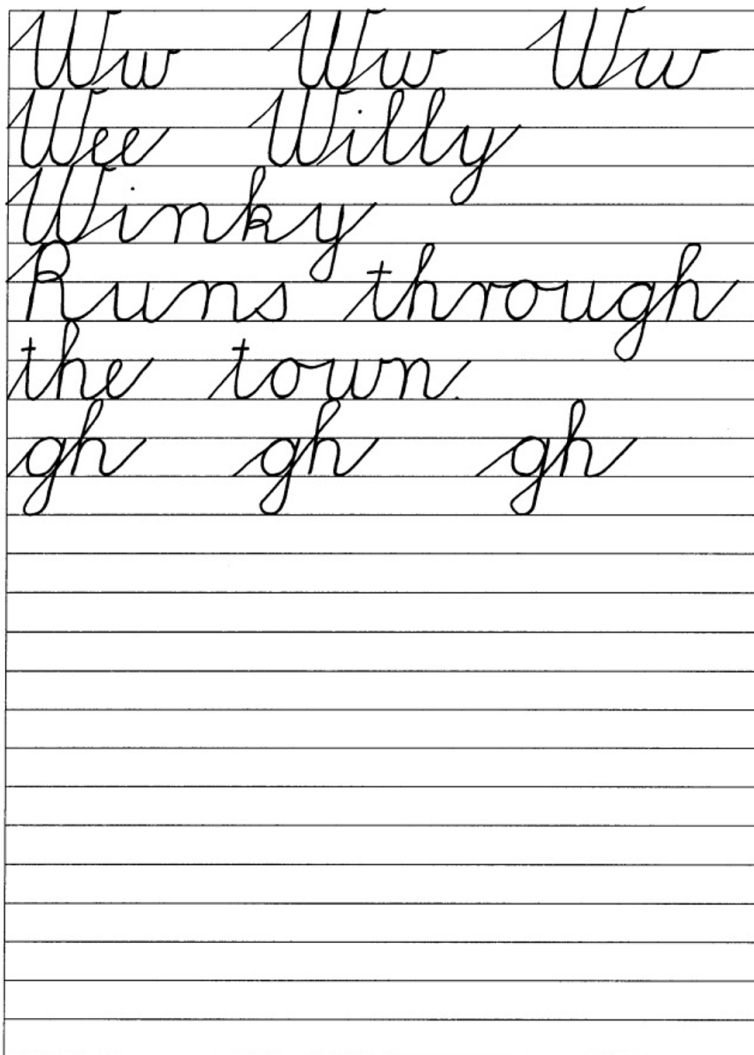 Ww Ww Ww
Wee Willy
Winky
Runs through
the town.
gh gh gh